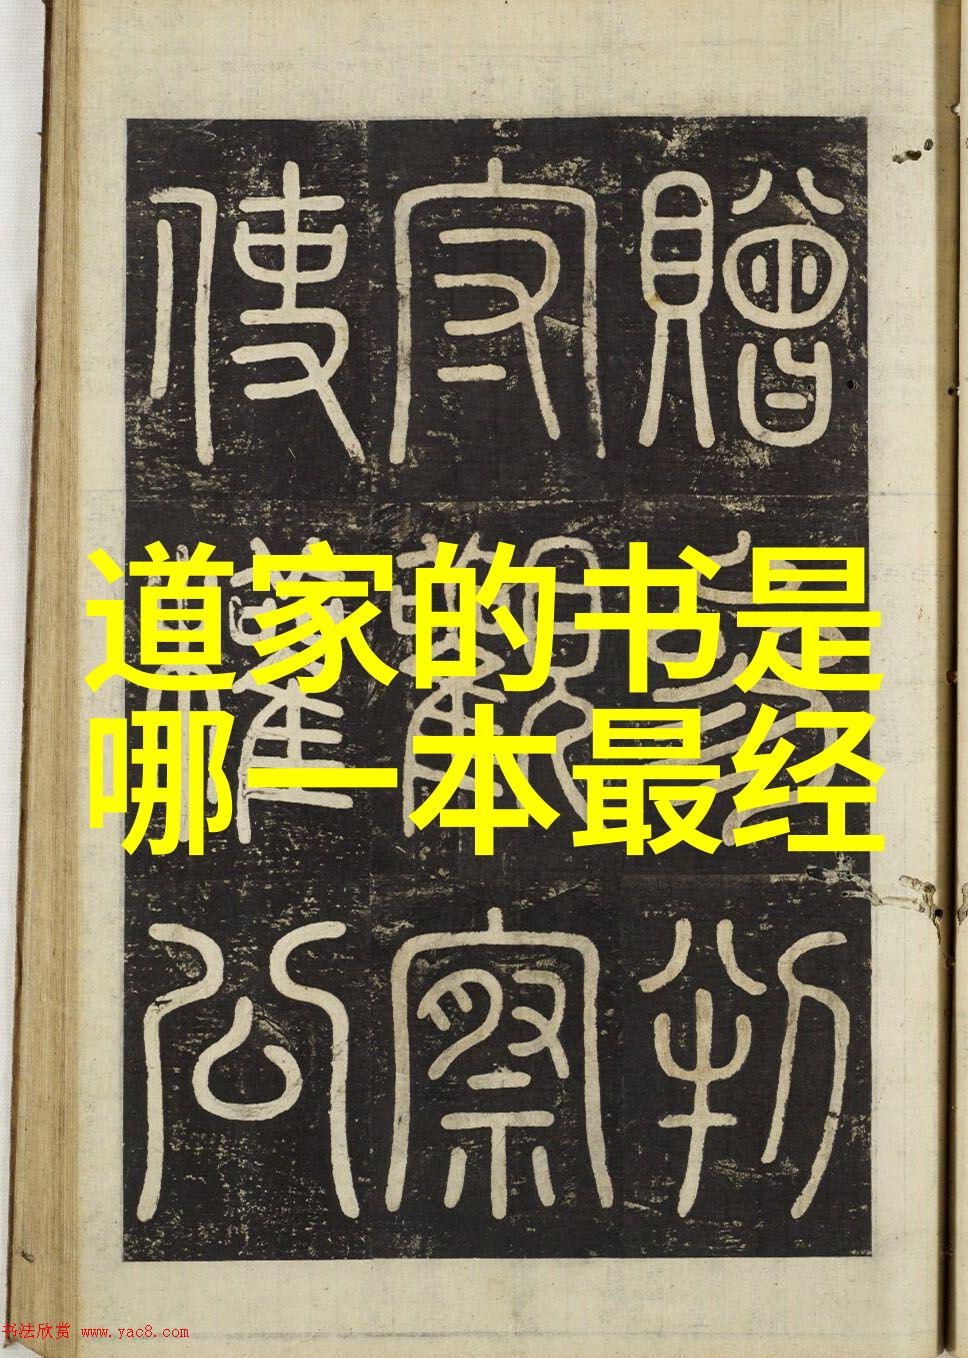 道家的书是
哪一本最经
贈
觀察
使權公
书法欣赏 www.yac8.com